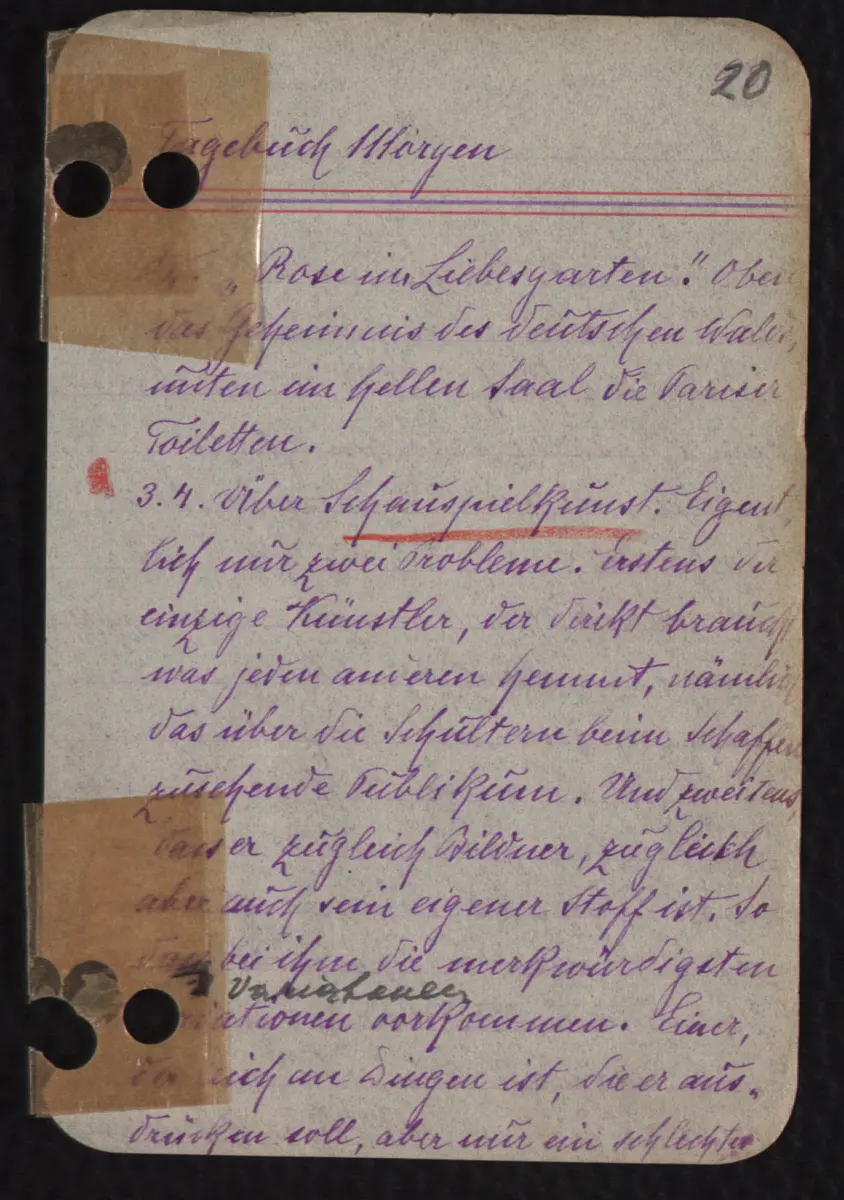 20
Tagebuch Morgen
„Rose im Liebesgarten“. Oben
das Geheimnis des deutschen Waldes,
unten im hellen Saal die Pariser
Toiletten.
3. 4. Über Schauspielkunst. Eigent
lich nur zwei Probleme. Erstens der
einzige Künstler, der direkt braucht
was jeden anderen hemmt, nämlich
das über die Schultern beim Schaffen
zusehende Publikum. Und zweitens,
dass er zugleich Bildner, zugleich
aber auch sein eigener Stoff ist. So
dass bei ihm die merkwürdigsten
Variationen
Variationen vorkommen. Einer,
der reich an Dingen ist, die er aus„
drücken soll, aber nur ein schlechter